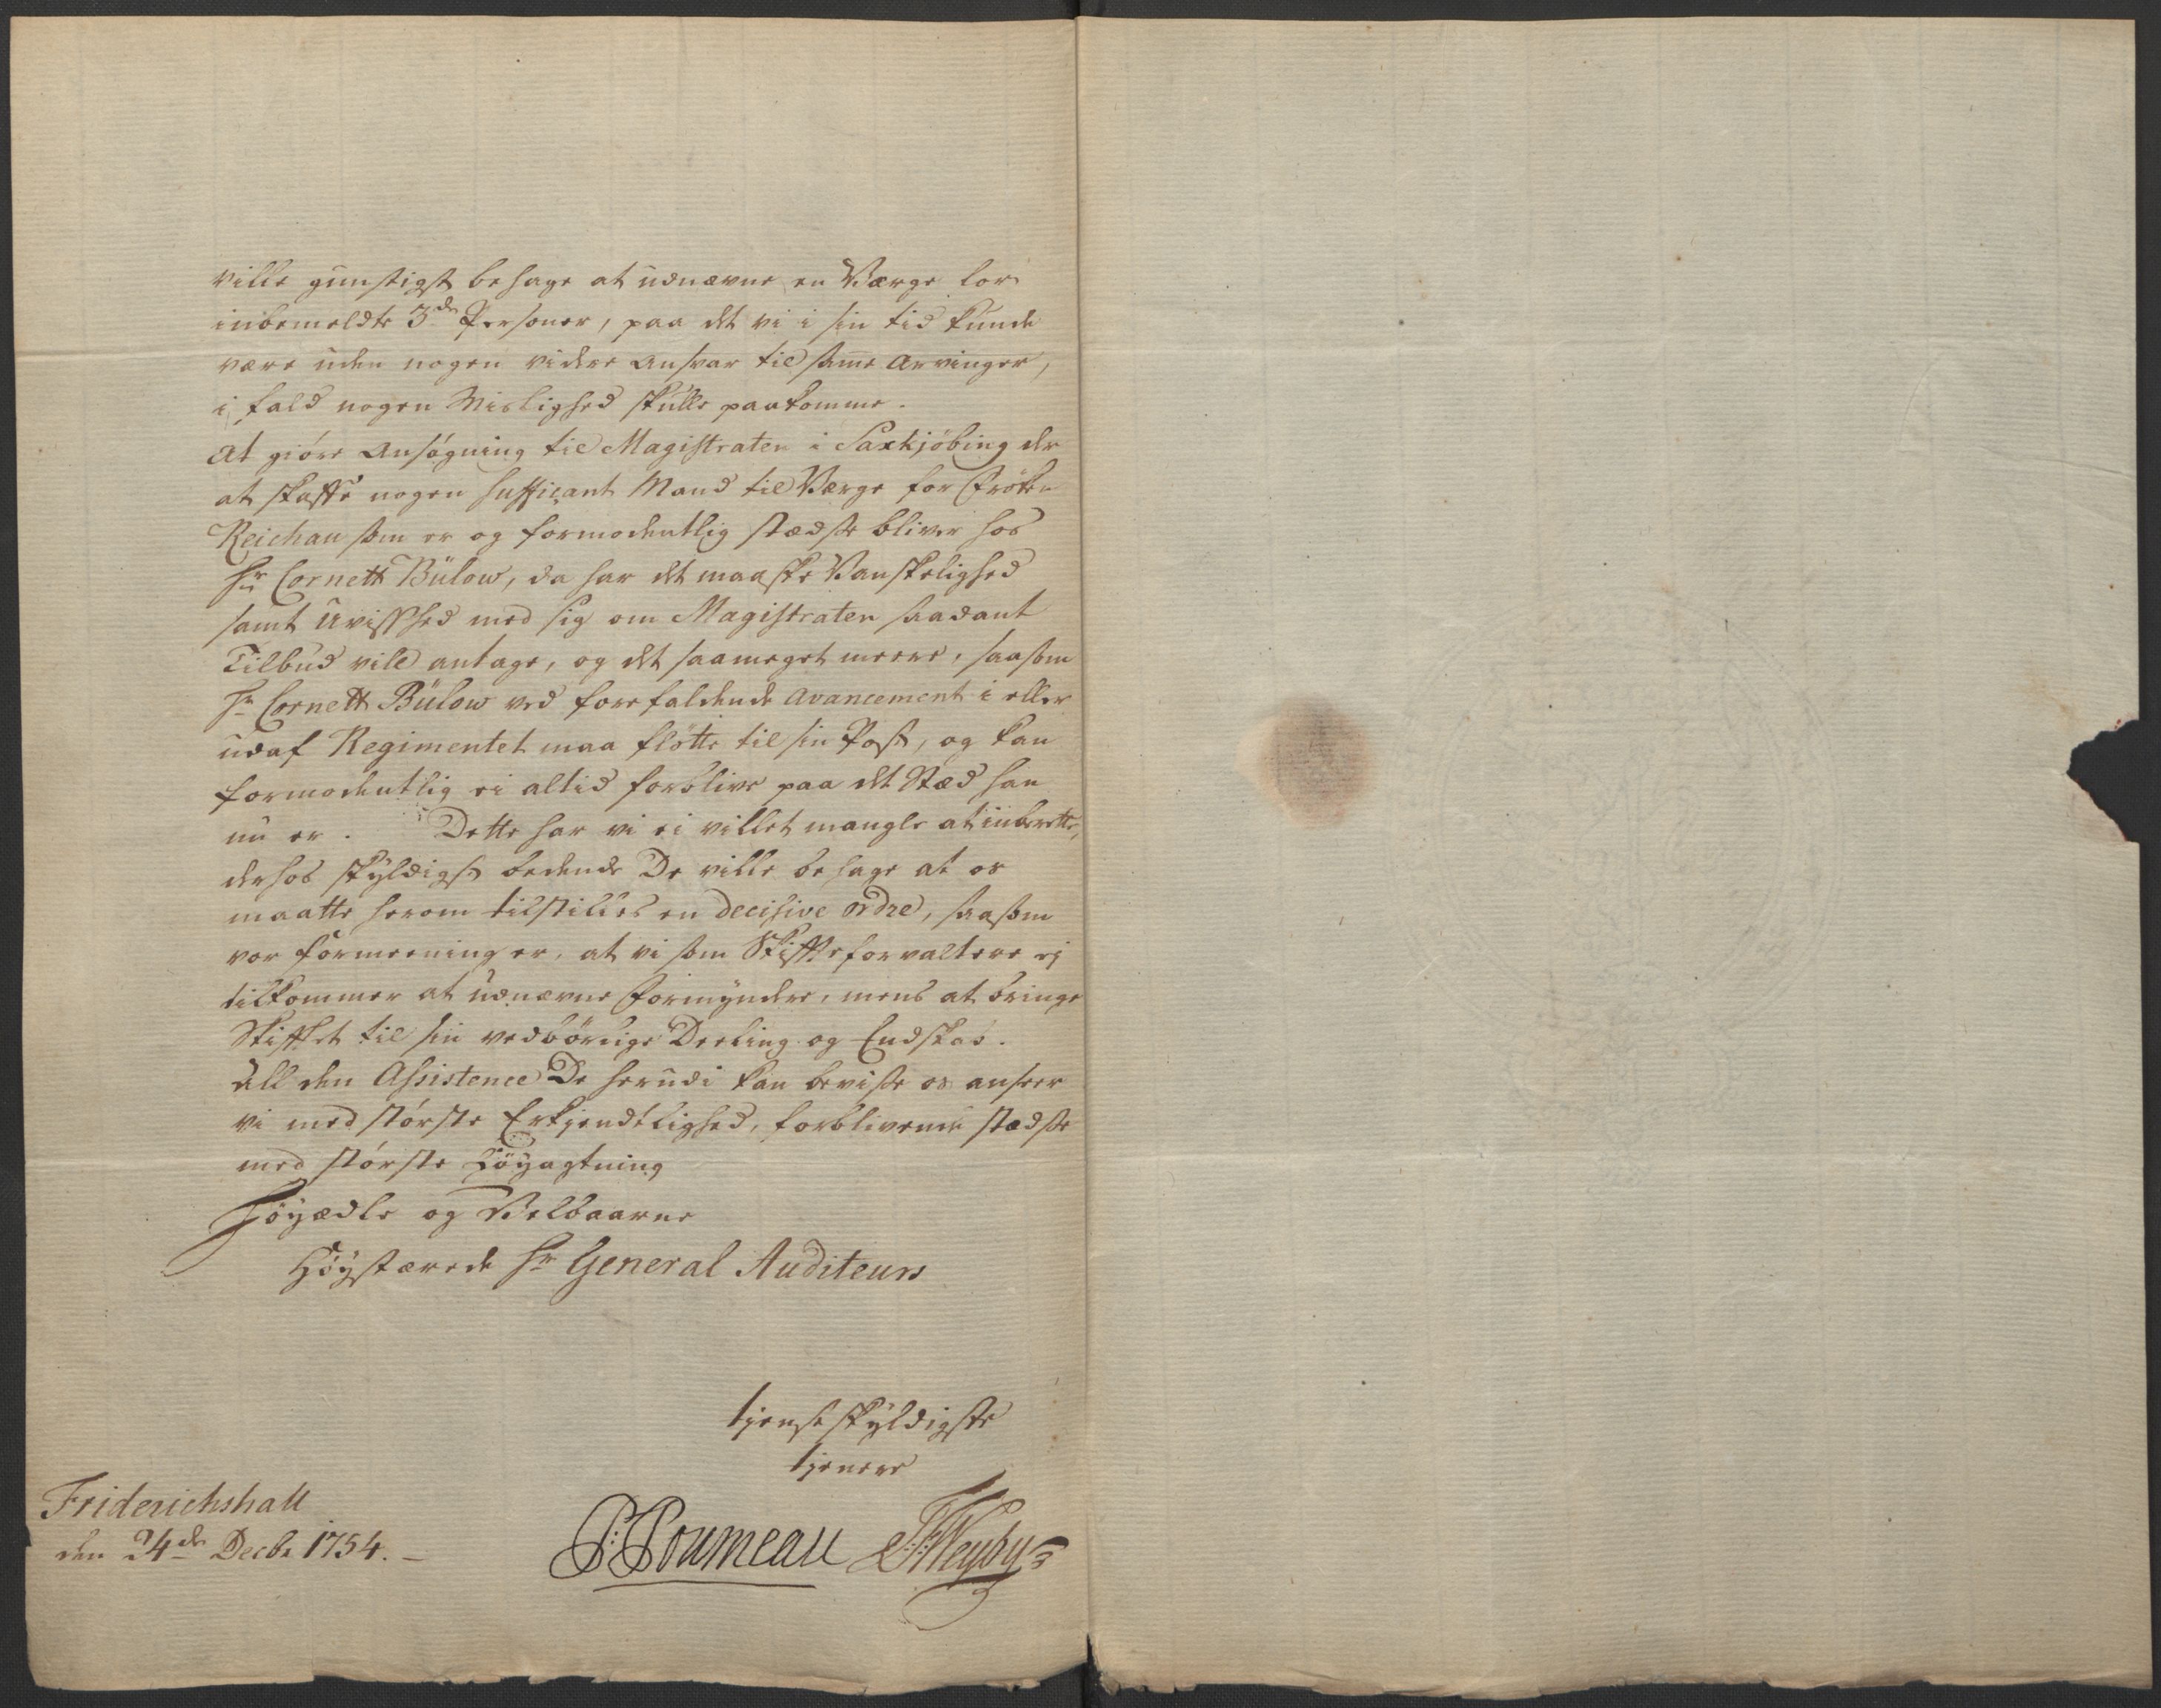 ville gunstigst behage at udnævne en Værge for
inbemeldte 3de Personer, paa det vi i sin tid kunde
være uden nogen videre Ansvar til samme Arvinger,
i fald nogen Mislighed skulle paakomme.
At giöre Ansögning til Magistraten i Saxkjöbing der
at skaffe nogen suffiçant Mand til Værge for Fröken
Reichau som er og formodentlig stædse bliver hos
Hr Cornett Bülow, da har det maaske Vanskelighed
samt Uvisshed med sig om Magistraten saadant
Tilbud vil antage, og det saameget meere, saasom
Hr Cornett Bülow ved forefaldende Avancement i eller
udaf Regimentet maa flötte til sin Post, og kan
formodentlig ei altid forblive paa det Stæd han
nu er. Dette har vi ei villet mangle at inberette,
derhos skyldigst bedende De ville behage at os
maatte herom tilstilles en decisive ordre, saasom
vor formeening er, at vi som Skifteforvaltere ej
tilkommer at udnævne Formyndere, mens at bringe
Skiftet til sin vedbörlige Deeling og Endskab.
All den Assistence De herudi kan beviise os anseer
vi med störste Erkjendtlighed, forblivende stædse
med störste Höyagtning
Höyædle og Velbaarne
Höystærede Hr General Auditeurs
tjenstskyldigste
tjenere
Friderichshall
den 24de Decbr 1754.
P: Poumeau
Weyby